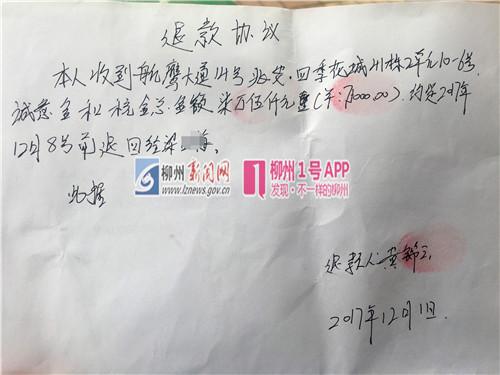 退款协议
本人收到航鹰大道14号兆安·四季花城11栋2单元10-6号
诚意金和税金总金额柒万伍仟元整(羊:75000.00).约定2017年
12月8号前退回给梁海.
此据
柳州新闻网
www.lznews.gov.cn
柳州1号APP
发现·不一样的柳州
退款人:黄
2017年12月1日.